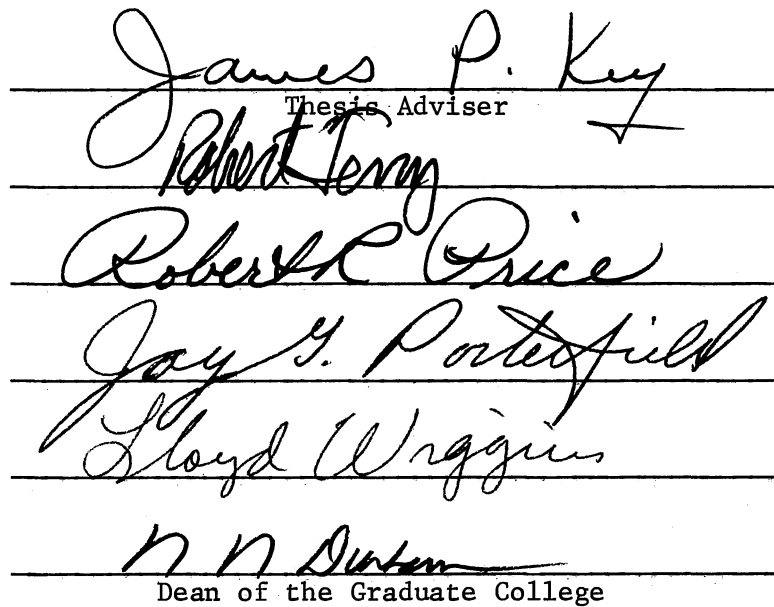 James P. Key
Thesis Adviser
Robert Terry
Robert R Price
Jay G. Porterfield
Lloyd Wiggins
N N Durham
Dean of the Graduate College